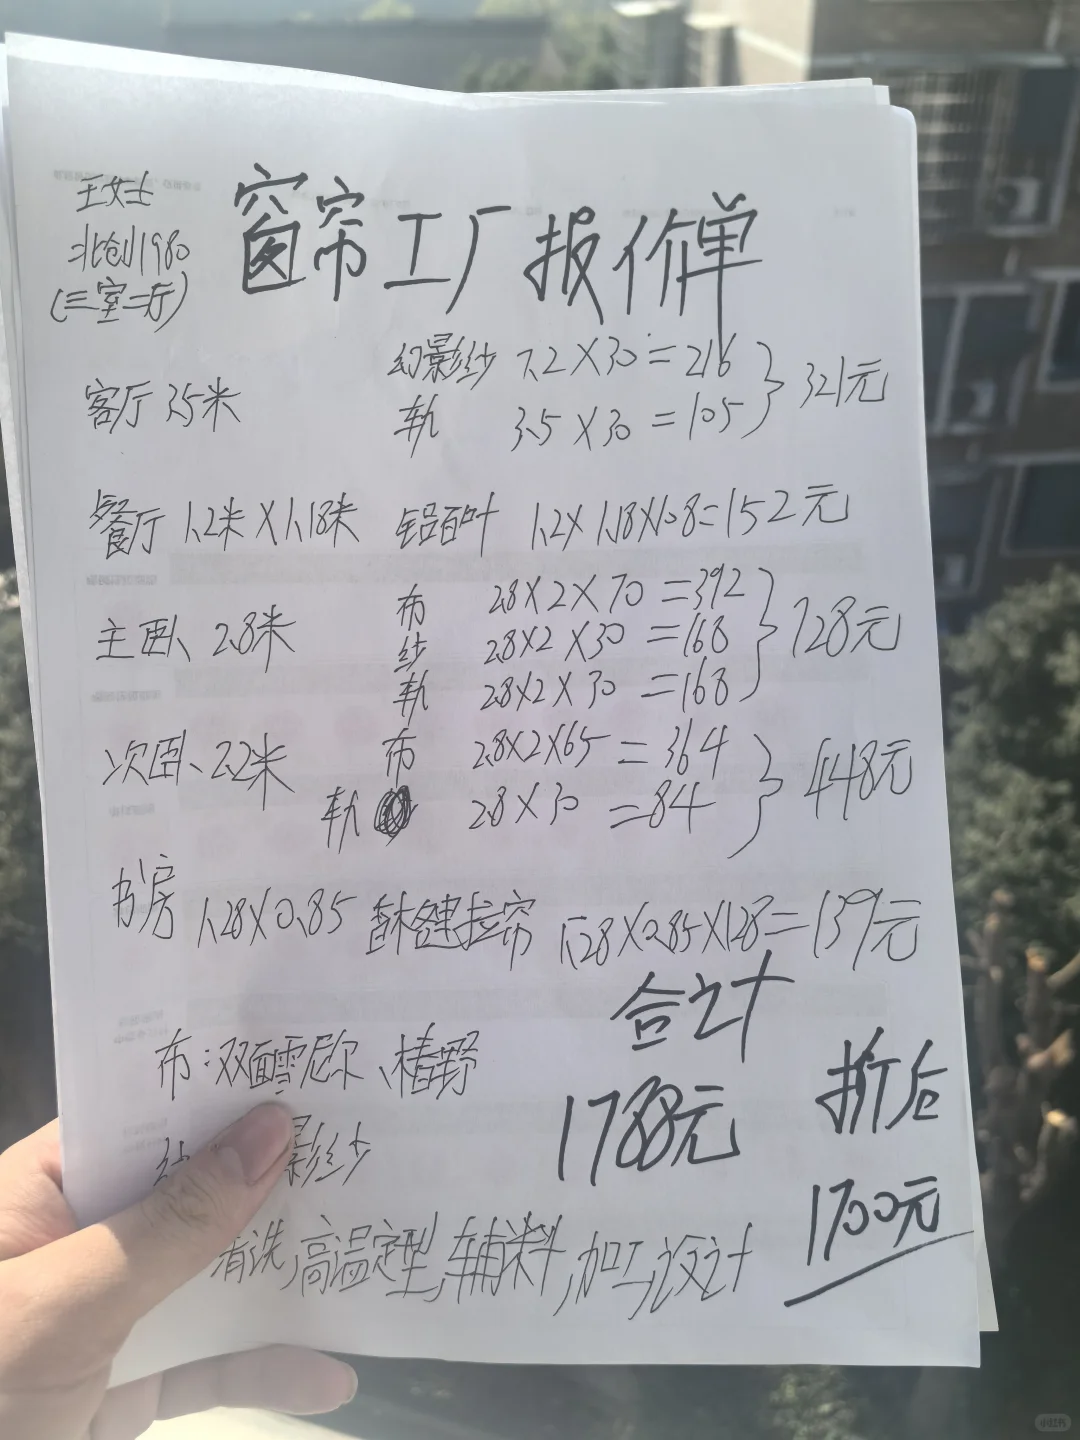 王女士
北创1980
(三室二厅)
窗帘工厂报价单
客厅 3.5米
幻影纱 7.2×30=216
轨 3.5×30=105
321元
餐厅 1.2米×1.18米 铝百叶 1.2×1.18×108=152元
主卧 2.8米
布 2.8×2×70=392
纱 2.8×2×30=168
轨 2.8×2×30=168
728元
次卧 2.2米
布 2.8×2×65=364
轨 2.8×30=84
448元
书房 1.28×0.85 拉帘 1.28×0.85×128=139元
合计
1788元
折后
1700元
布:双面雪尼尔、椿野
影纱
清洗,高温定型,辅料,加工,设计
小红书